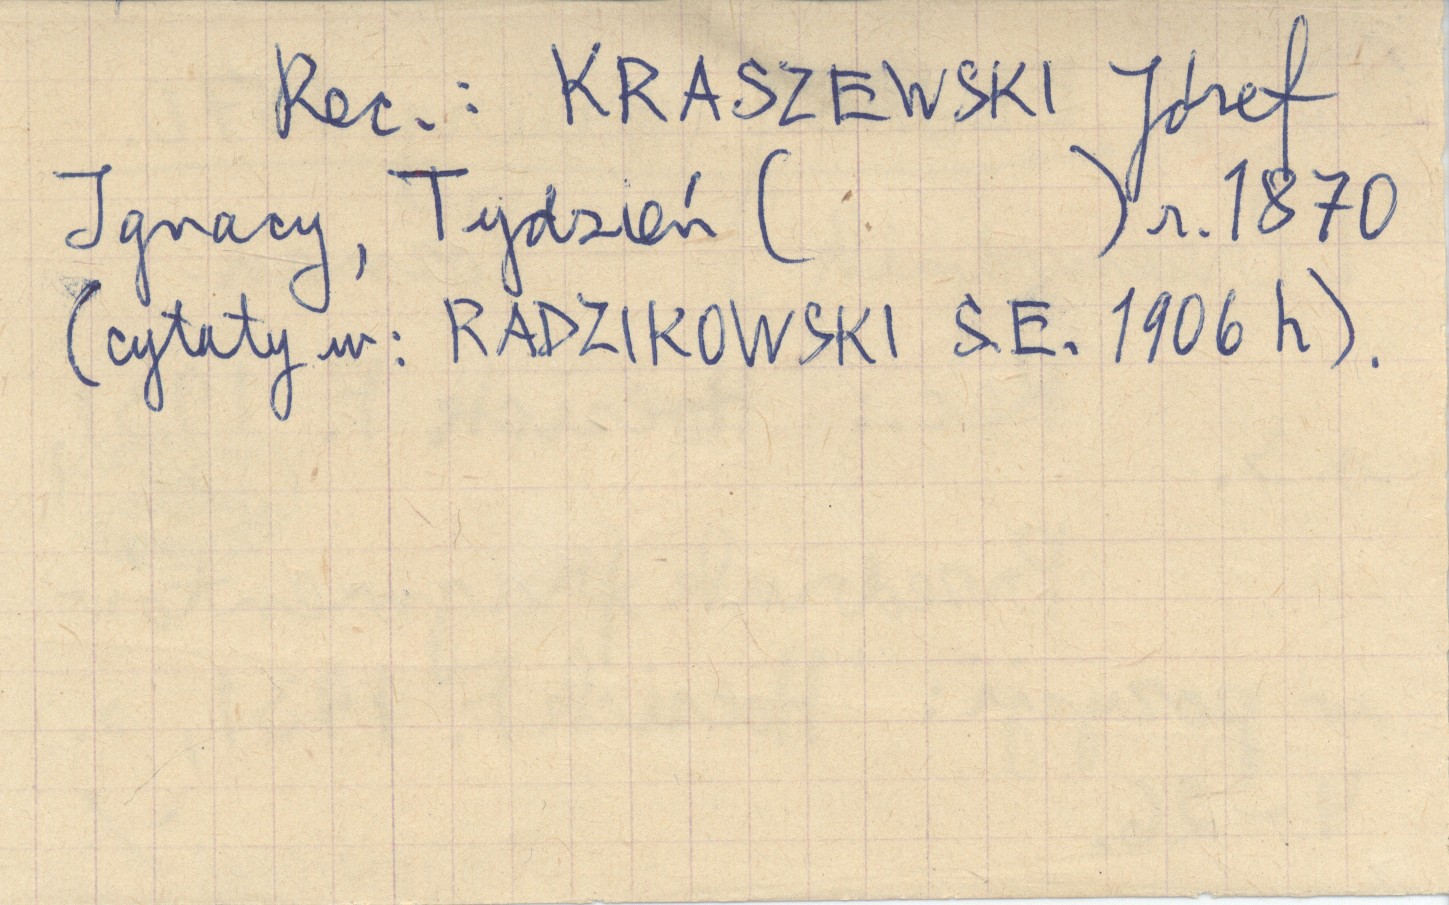 Rec.: KRASZEWSKI Józef
Ignacy, Tydzień (          ) r. 1870
(cytaty w: RADZIKOWSKI S.E. 1906 h).